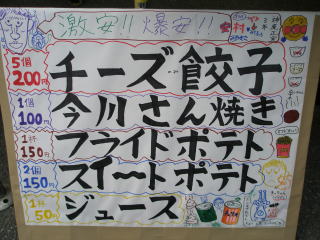 激安!! 爆安!!
5個 200円 チーズ餃子
1個 100円 今川さん焼き
1杯 150円 フライドポテト
2個 150円 スイートポテト
1杯 50円 ジュース